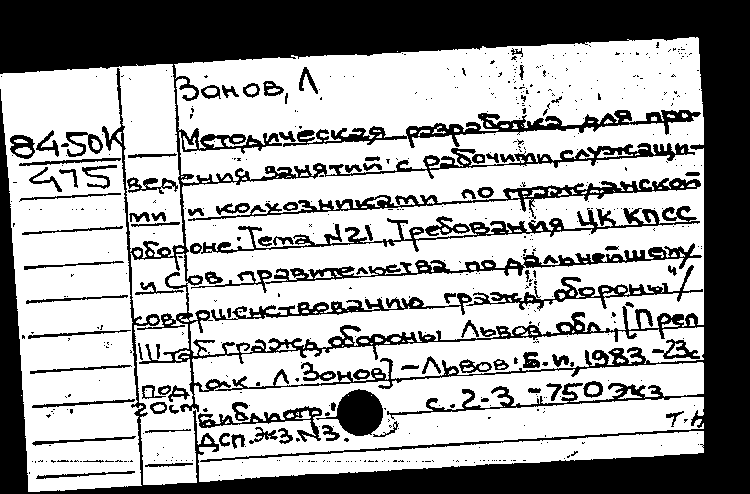 Зонов, Л
84-50К
475
Методическая разработка для про-
ведения занятий с рабочими, служащи-
ми и колхозниками по гражданской
обороне: Тема N21 „Требования ЦК КПСС
и Сов. правительства по дальнейшему
совершенствованию гражд. обороны"/
Штаб гражд. обороны Львов. обл.; [Преп
подполк. Л. Зонов]. - Львов: Б. и., 1983. - 23 с.
20 см.
Библиогр.: с. 2-3. - 750 экз.
Дсп. экз. N3.
Т.Н